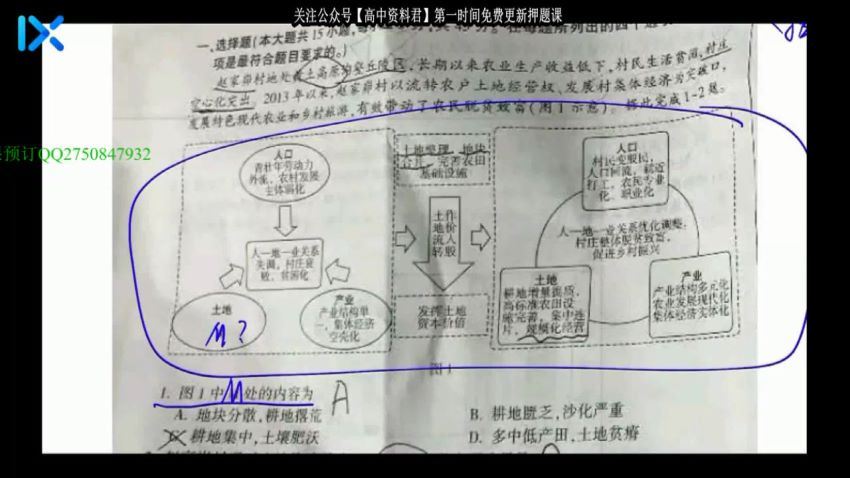 关注公众号【高中资料君】第一时间免费更新押题课
IX
预订QQ2750847932
一、选择题(本大题共15小题,
项是最符合题目要求的。)
赵家峁村地处黄土高原沟壑丘陵区,长期以来农业生产收益低下,村民生活贫困,村庄
空心化突出。2013年以来,赵家峁村以流转农户土地经营权,发展村集体经济为突破口,
发展特色现代农业和乡村旅游,有效带动了农民脱贫致富(图1示意)。据此完成1~2题。
人口
青壮年劳动力
外流,农村发展
主体弱化
人—地—业关系
失调,村庄衰
败、贫困化
土地
M?
产业
产业结构单
一,集体经济
空壳化
土地整理,地块
合并,完善农田
基础设施
土作
地价
流入
转股
发挥土地
资本价值
人口
村民变股民,
人口回流,就近
打工,农民专业
化、职业化
人—地—业关系优化调整,
村庄整体脱贫致富,
促进乡村振兴
土地
耕地增量提质,
高标准农田设
施完善,集中连
片,规模化经营
产业
产业结构多元化
农业发展现代化
集体经济实体化
图1
1. 图1中M处的内容为 A
A. 地块分散,耕地撂荒
B. 耕地匮乏,沙化严重
C. 耕地集中,土壤肥沃
D. 多中低产田,土地贫瘠